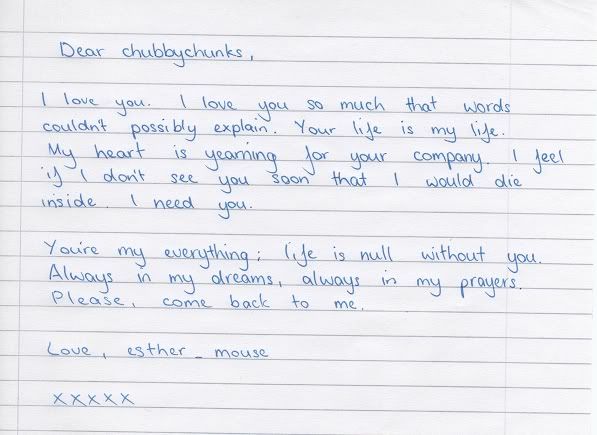 Dear chubbychunks,
I love you. I love you so much that words
couldn't possibly explain. Your life is my life.
My heart is yearning for your company. I feel
if I don't see you soon that I would die
inside. I need you.
You're my everything; life is null without you.
Always in my dreams, always in my prayers.
Please, come back to me.
Love, esther_mouse
xxxxx